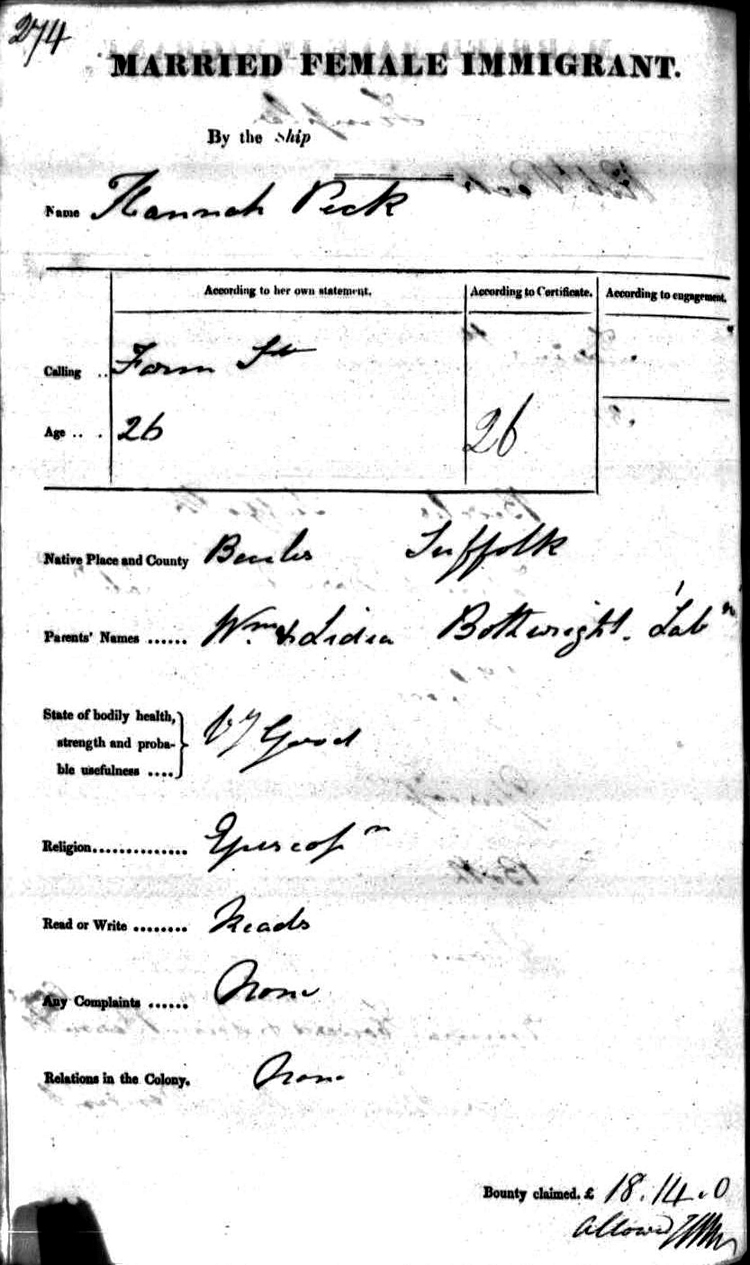 274
MARRIED FEMALE IMMIGRANT.
By the Ship
Name Hannah Peck
According to her own statement. According to Certificate. According to engagement.
Calling .. Farm St
Age .. . 26 26
Native Place and County Beccles Suffolk
Parents' Names ...... Wm & Lidia Bottwright. Labr
State of bodily health,
strength and proba-
ble usefulness .... Vy Good
Religion.............. Episcopn
Read or Write ........ Reads
Any Complaints ...... None
Relations in the Colony. None
Bounty claimed. £ 18.14.0
Allowed